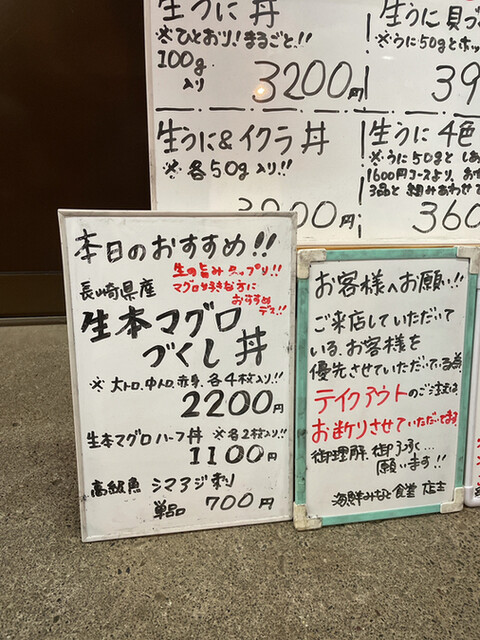 生うに丼
※ひとおり!まるごと!!
100g
入り
3200円
生うに貝づ
※うに50gとホッ
39
生うに&イクラ丼
※各50g入り!!
円
生うに4色
※うに50gと
1600円コースより、お
3品と組みあわせて
360
本日のおすすめ!!
長崎県産
生の旨みたップリ!!
マグロ好きな方に
おすすめ
デス!!
生本マグロ
づくし丼
※大トロ、中トロ、赤身、各4枚入り!!
2200円
生本マグロハーフ丼 ※各2枚入り!!
1100円
高級魚 シマアジ刺り
単品 700円
お客様へお願い!!
ご来店していただいて
いる、お客様を
優先させていただいている為
テイクアウトのご注文は、
お断りさせていただいてます。
御理解、御了承…
願います!!
海鮮みなと食堂 店主